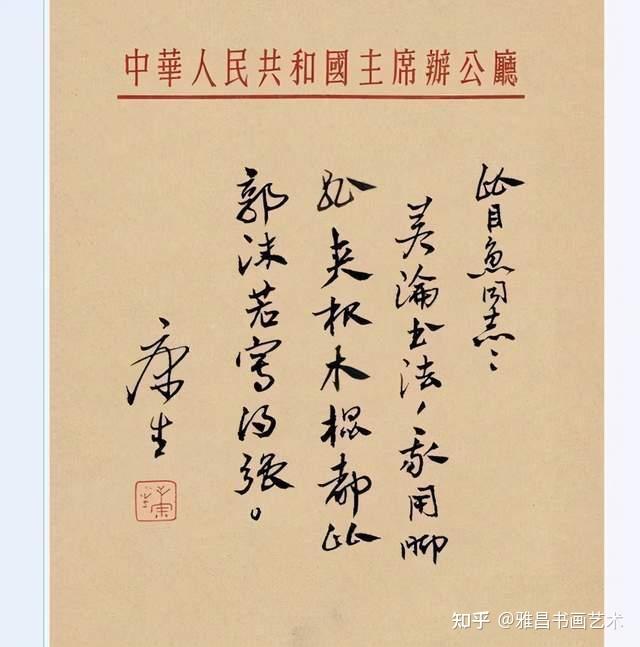 中華人民共和國主席辦公廳
比目魚同志：
論书法，我用脚
夹根木棍都比
郭沫若寫得强。
康生
知乎 @雅昌书画艺术